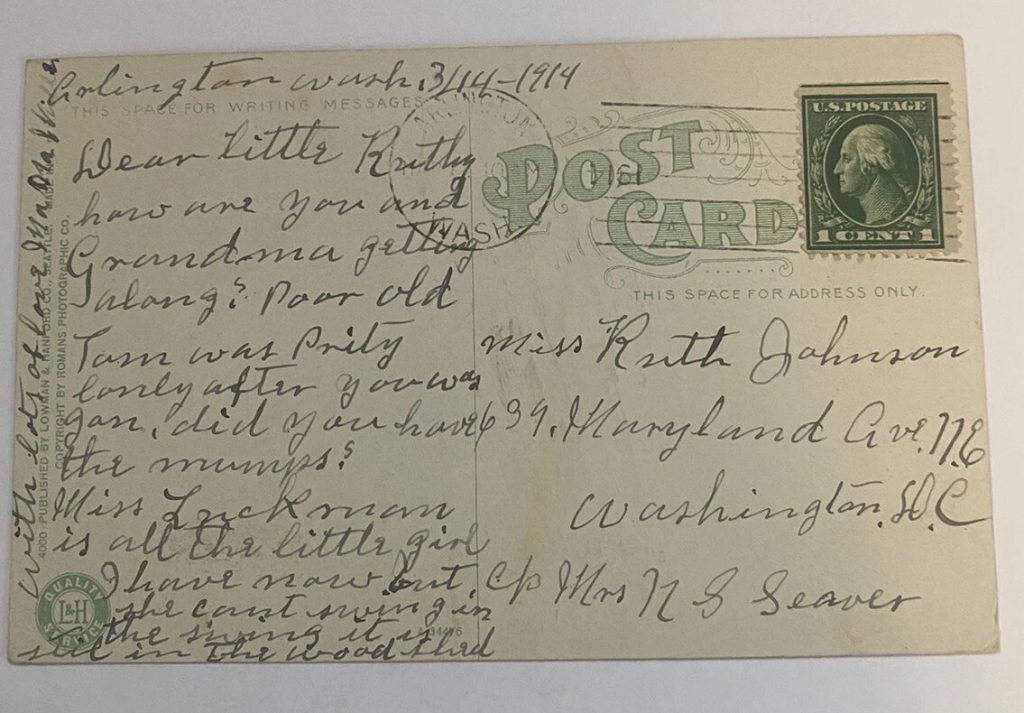 Arlington Wash. 3/14-1914
THIS SPACE FOR WRITING MESSAGES
Dear little Ruthy
how are you and
Grandma getting
along? Poor old
Tom was Prity
lonly after you was
gon, did you have
the mumps?
Miss Luckman
is all the little girl
I have now but,
she cant swing in
the swing it is
still in the wood shed
with lots of love
4000 PUBLISHED BY LOWMAN & HANFORD CO., SEATTLE,
COPYRIGHT BY ROMANS PHOTOGRAPHIC CO.
QUALITY
L&H
ARLINGTON
WASH
POST
CARD
U.S. POSTAGE
1 CENT 1
THIS SPACE FOR ADDRESS ONLY.
Miss Ruth Johnson
639. Maryland Ave. N.E
Washington. D.C
c/o Mrs N S Seaver